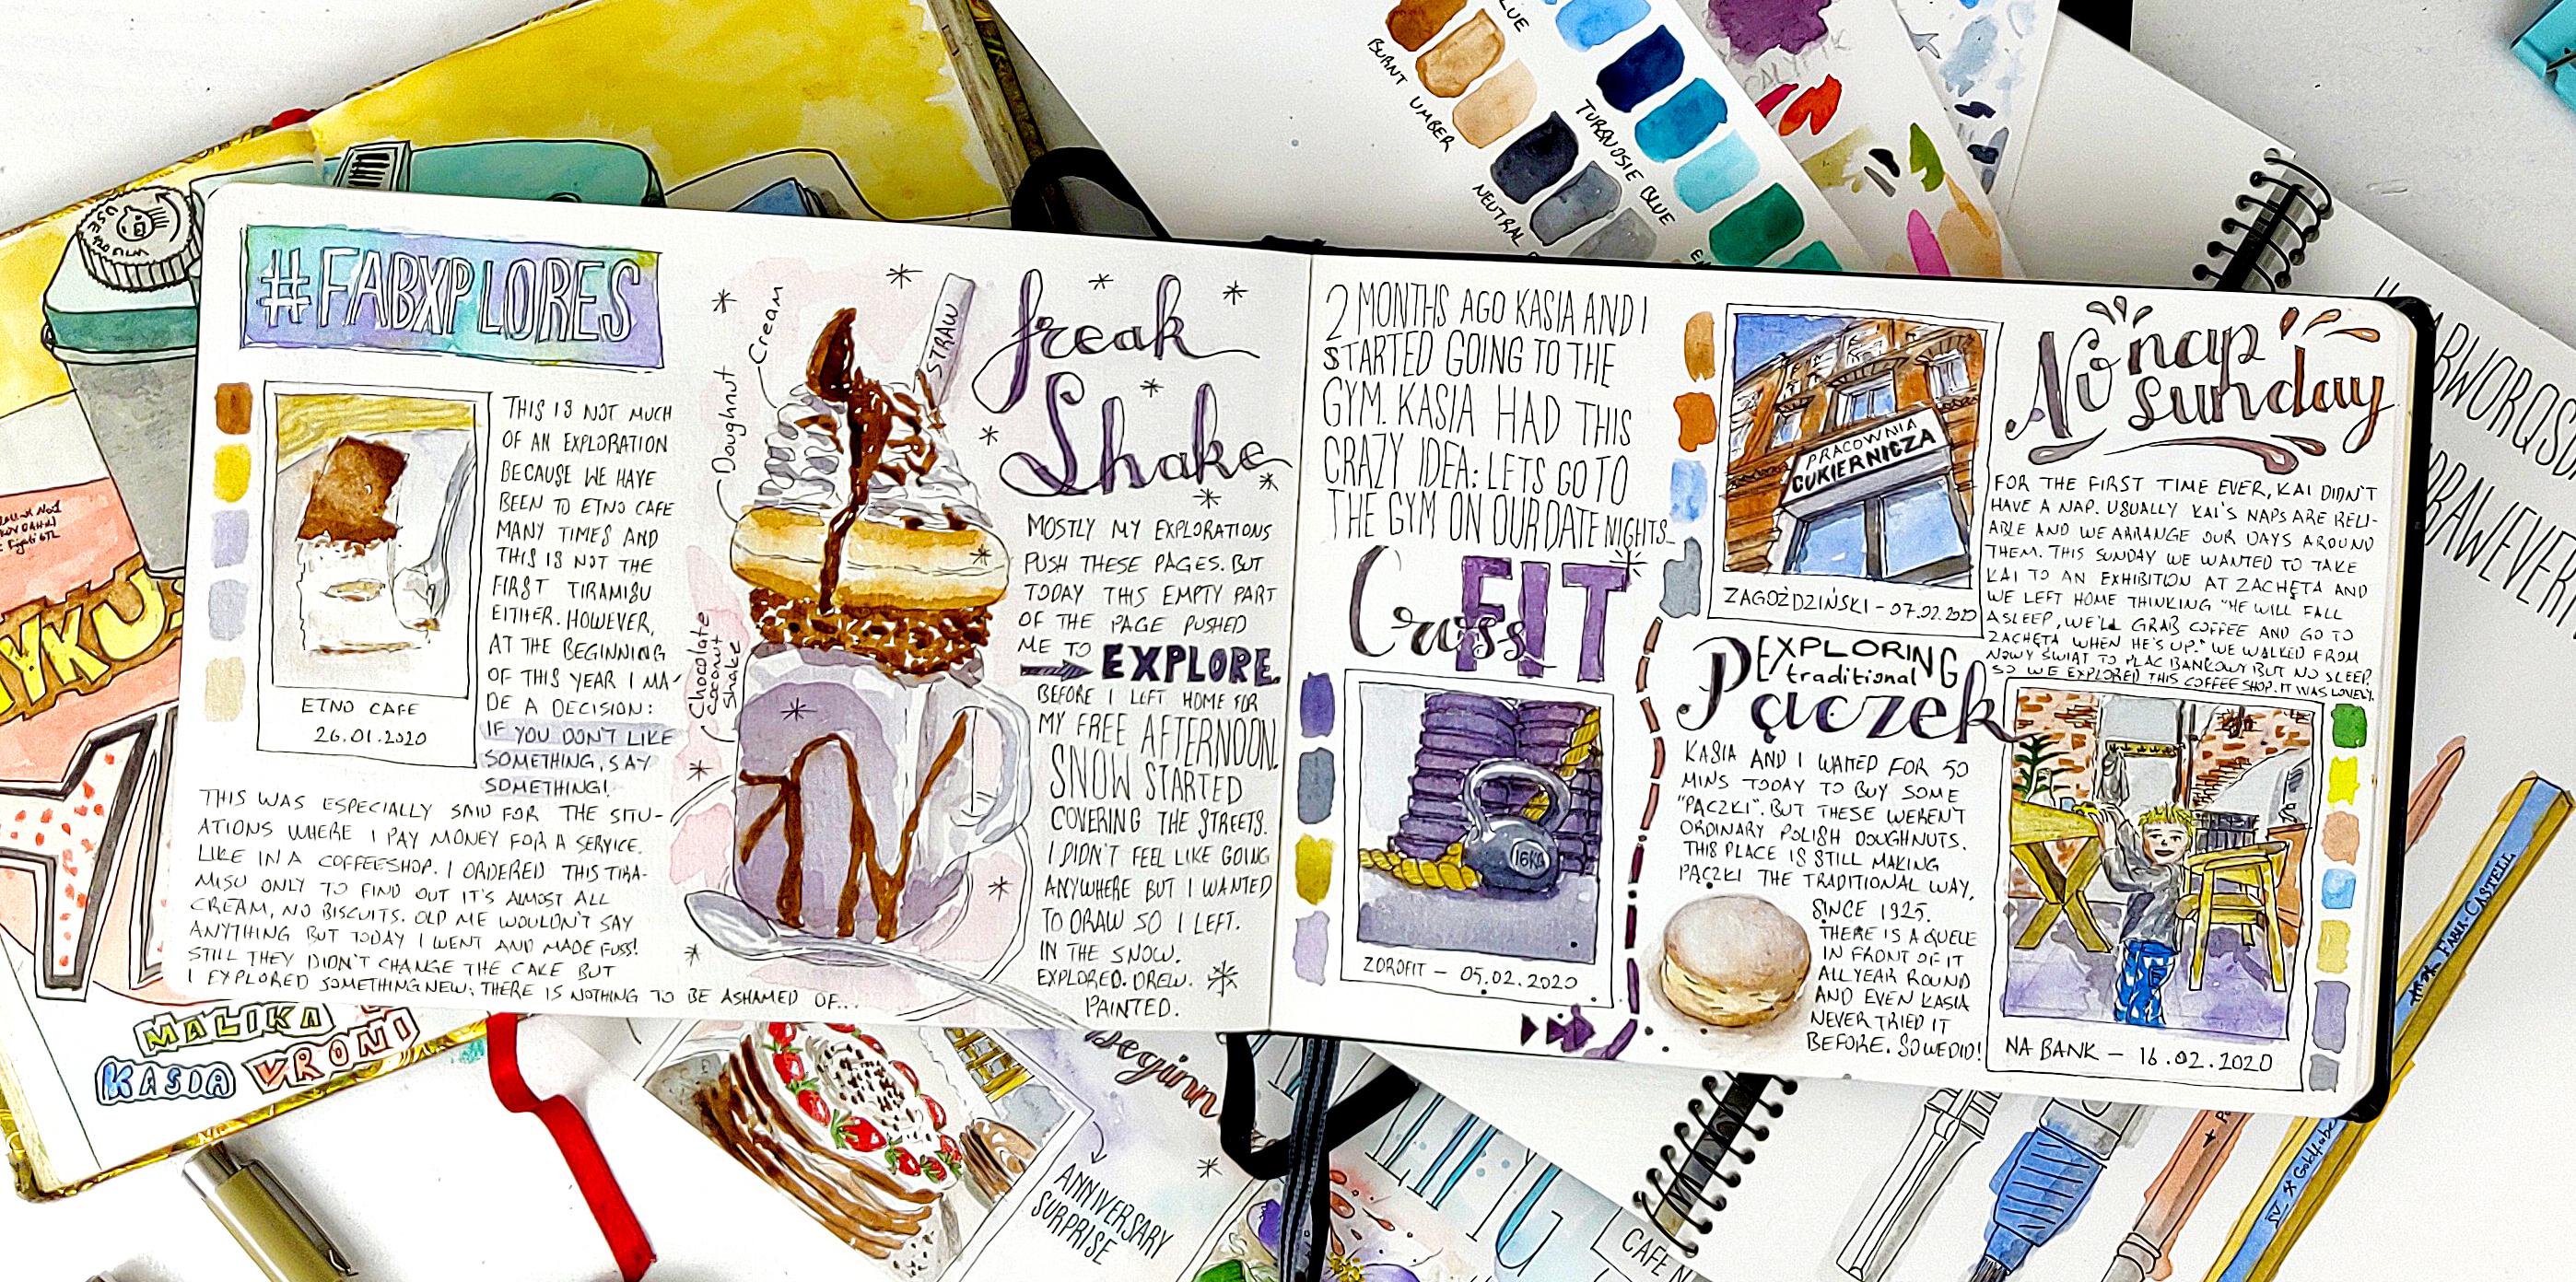 #FABXPLORES
THIS IS NOT MUCH
OF AN EXPLORATION
BECAUSE WE HAVE
BEEN TO ETNO CAFE
MANY TIMES AND
THIS IS NOT THE
FIRST TIRAMISU
EITHER. HOWEVER,
AT THE BEGINNING
OF THIS YEAR I MA-
DE A DECISION:
IF YOU DON'T LIKE
SOMETHING, SAY
SOMETHING!
ETNO CAFE
26.01.2020
THIS WAS ESPECIALLY SAID FOR THE SITU-
ATIONS WHERE I PAY MONEY FOR A SERVICE.
LIKE IN A COFFEESHOP. I ORDERED THIS TIRA-
MISU ONLY TO FIND OUT IT'S ALMOST ALL
CREAM, NO BISCUITS. OLD ME WOULDN'T SAY
ANYTHING BUT TODAY I WENT AND MADE FUSS!
STILL THEY DIDN'T CHANGE THE CAKE BUT
I EXPLORED SOMETHING NEW: THERE IS NOTHING TO BE ASHAMED OF...
Doughnut
Cream
STRAW
Chocolate
coconut
Shake
freak
Shake
MOSTLY MY EXPLORATIONS
PUSH THESE PAGES. BUT
TODAY THIS EMPTY PART
OF THE PAGE PUSHED
ME TO EXPLORE.
BEFORE I LEFT HOME FOR
MY FREE AFTERNOON.
SNOW STARTED
COVERING THE STREETS.
I DIDN'T FEEL LIKE GOING
ANYWHERE BUT I WANTED
TO DRAW SO I LEFT.
IN THE SNOW.
EXPLORED. DREW.
PAINTED.
2 MONTHS AGO KASIA AND I
STARTED GOING TO THE
GYM. KASIA HAD THIS
CRAZY IDEA: LETS GO TO
THE GYM ON OUR DATE NIGHTS
Cross FIT
16KG
ZDROFIT - 05.02.2020
PRACOWNIA
CUKIERNICZA
ZAGOŹDZIŃSKI - 07.02.2020
EXPLORING
traditional
Pączek
KASIA AND I WAITED FOR 50
MINS TODAY TO BUY SOME
"PĄCZKI". BUT THESE WEREN'T
ORDINARY POLISH DOUGHNUTS.
THIS PLACE IS STILL MAKING
PĄCZKI THE TRADITIONAL WAY,
SINCE 1925.
THERE IS A QUEUE
IN FRONT OF IT
ALL YEAR ROUND
AND EVEN KASIA
NEVER TRIED IT
BEFORE. SO WE DID!
No nap
sunday
FOR THE FIRST TIME EVER, KAI DIDN'T
HAVE A NAP. USUALLY KAI'S NAPS ARE RELI-
ABLE AND WE ARRANGE OUR DAYS AROUND
THEM. THIS SUNDAY WE WANTED TO TAKE
KAI TO AN EXHIBITION AT ZACHĘTA AND
WE LEFT HOME THINKING "HE WILL FALL
ASLEEP, WE'LL GRAB COFFEE AND GO TO
ZACHĘTA WHEN HE'S UP." WE WALKED FROM
NOWY ŚWIAT TO PLAC BANKOWY BUT NO SLEEP.
SO WE EXPLORED THIS COFFEE SHOP. IT WAS LOVELY.
NA BANK - 16.02.2020
BURNT UMBER
TURQUOSIE BLUE
NEUTRAL
MALIKA
KASIA VRONI
Beginn
ANNIVERSARY
SURPRISE
CAFE N
FABER-CASTELL
Goldfaber